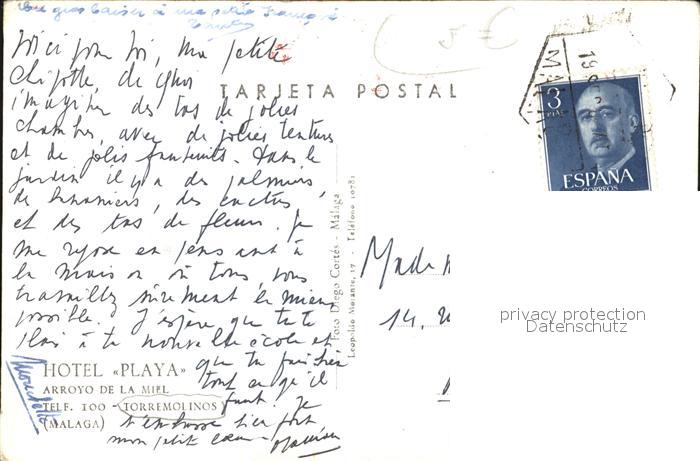 Un gros baiser à ma petite
Voici pour toi, ma petite
chipotte, de quoi
imaginer des tas de jolies
chambres, avec de jolies tentures
et de jolis fauteuils. Dans le
jardin il y a des palmiers,
de bananiers, des cactus,
et des tas de fleurs. Je
me repose en pensant à
la maison où tous vous
travaillez sûrement le mieux
possible. J'espère que tu te
plais à ta nouvelle école et
que tu fais bien
tout ce qu'il
faut. Je
t'embrasse bien fort
mon petit cœur. Maman
HOTEL «PLAYA»
ARROYO DE LA MIEL
TELF. 100 - TORREMOLINOS
(MALAGA)
TARJETA POSTAL
Foto Diego Cortés - Málaga
Leopoldo Morante, 17 - Teléfono 10781
5 €
MALAGA
3
PTAS
ESPAÑA
CORREOS
Made
14,
privacy protection
Datenschutz